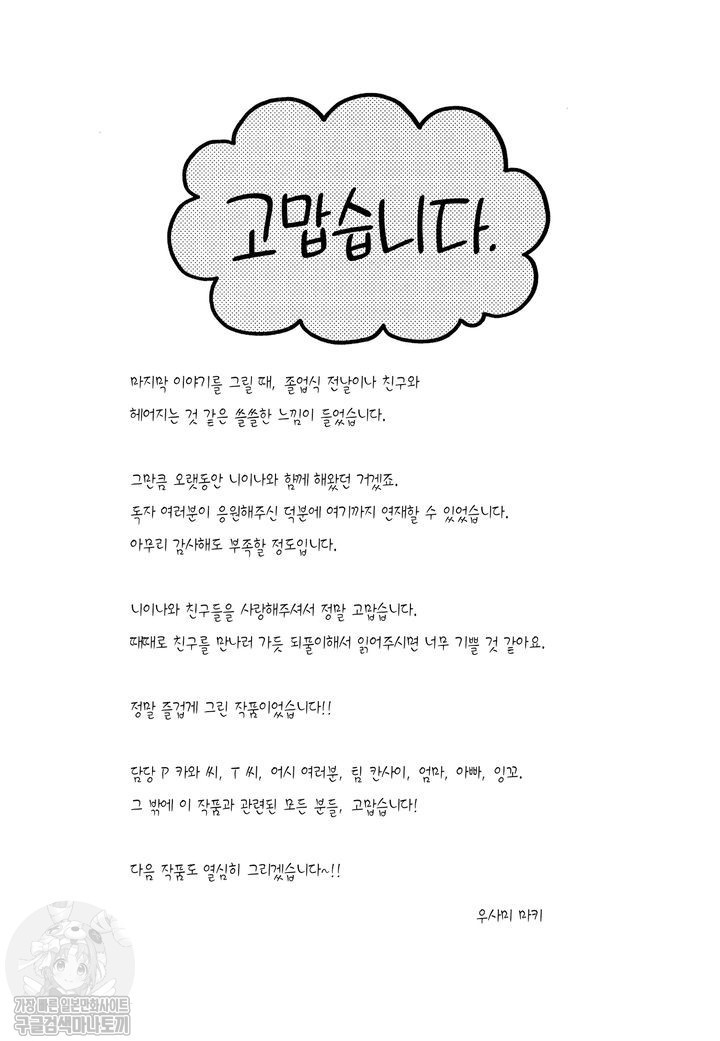 고맙습니다.
마지막 이야기를 그릴 때, 졸업식 전날이나 친구와
헤어지는 것 같은 쓸쓸한 느낌이 들었습니다.
그만큼 오랫동안 니이나와 함께 해왔던 거겠죠.
독자 여러분이 응원해주신 덕분에 여기까지 연재할 수 있었습니다.
아무리 감사해도 부족할 정도입니다.
니이나와 친구들을 사랑해주셔서 정말 고맙습니다.
때때로 친구를 만나러 가듯 되풀이해서 읽어주시면 너무 기쁠 것 같아요.
정말 즐겁게 그린 작품이었습니다!!
담당 P 카와 씨, T 씨, 어시 여러분, 팀 칸사이, 엄마, 아빠, 잉꼬.
그 밖에 이 작품과 관련된 모든 분들, 고맙습니다!
다음 작품도 열심히 그리겠습니다~!!
우사미 마키
가장 빠른 일본만화사이트
구글검색마나토끼